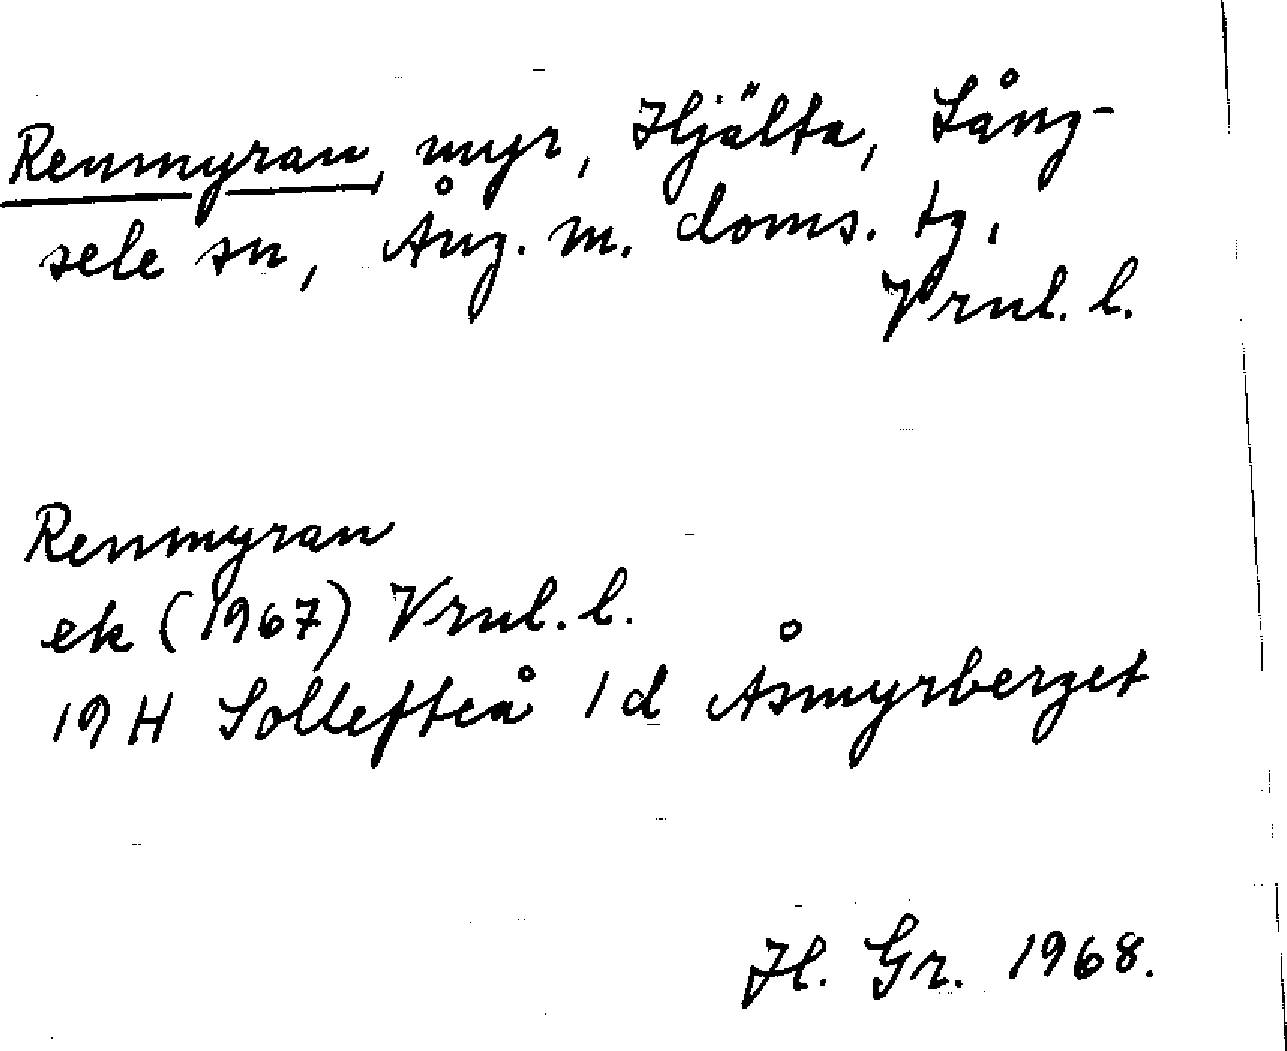 Renmyran, myr, Hjälta, Lång-
sele sn, Ång. m. doms. tg.
Vrnl. l.
Renmyran
ek (1967) Vrnl. l.
19 H Sollefteå 1 d Åsmyrberget
H. Gr. 1968.